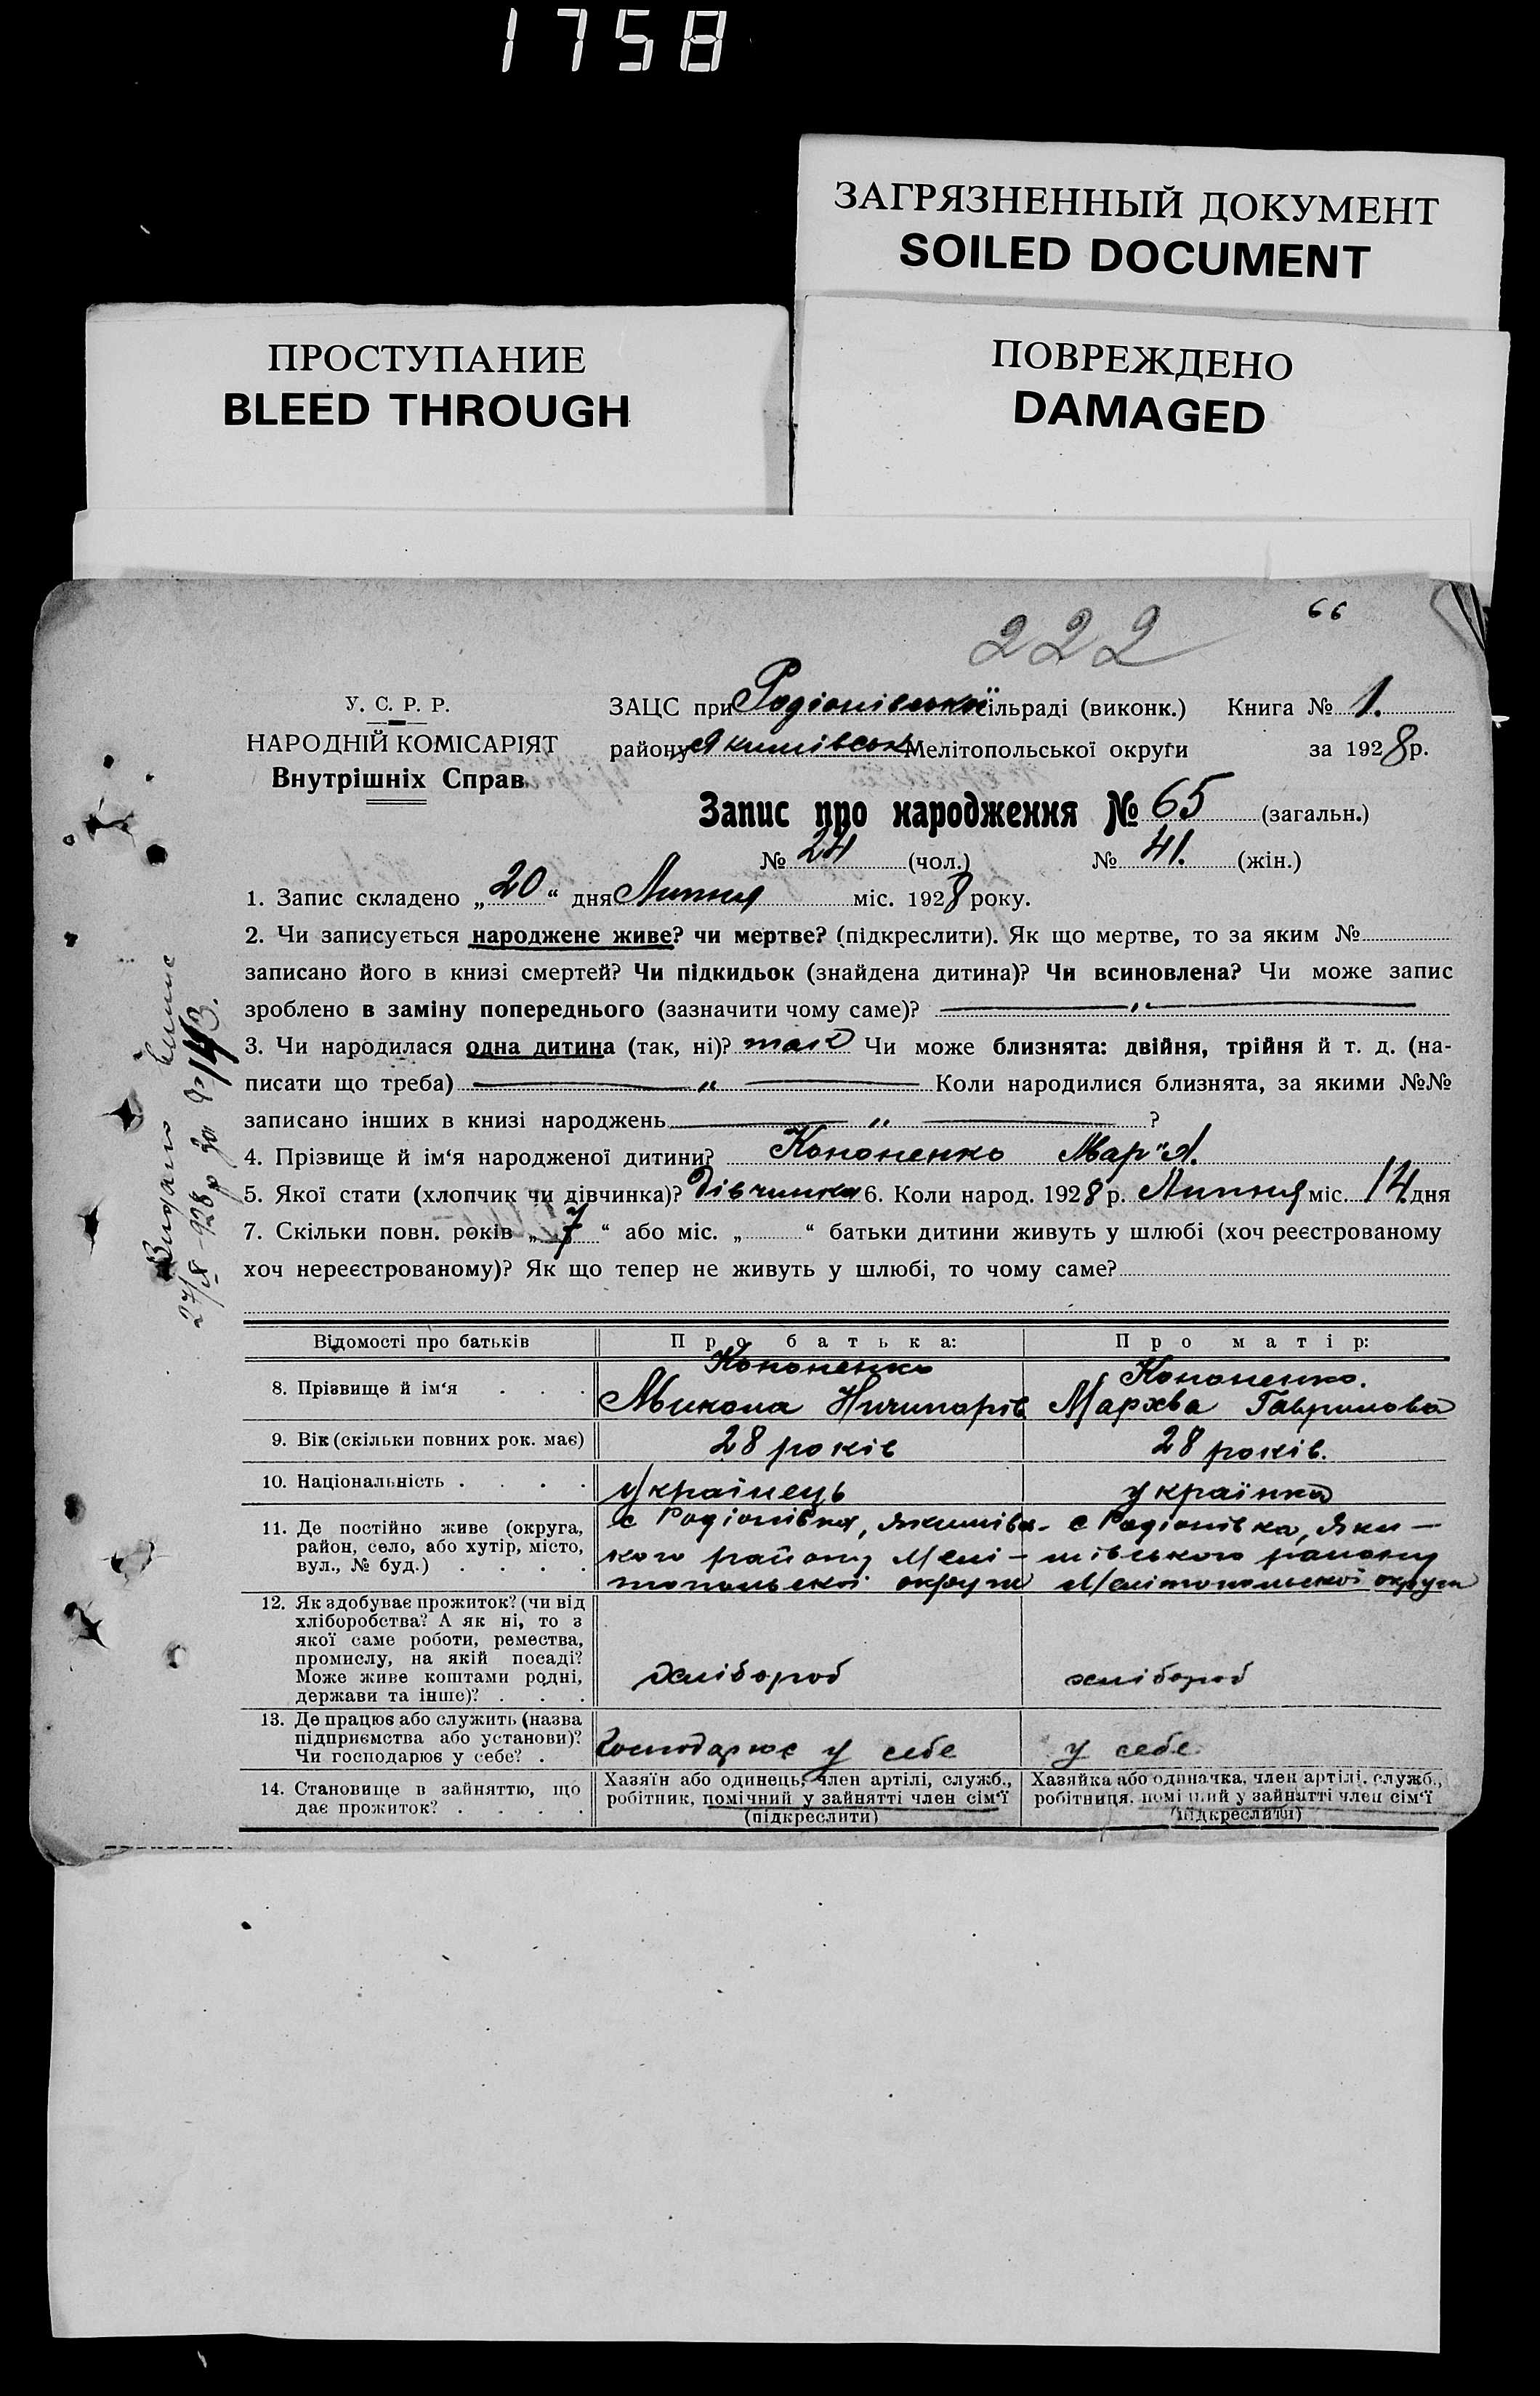 1758
ЗАГРЯЗНЕННЫЙ ДОКУМЕНТ
SOILED DOCUMENT
ПРОСТУПАНИЕ
BLEED THROUGH
ПОВРЕЖДЕНО
DAMAGED
66
222
У. С. Р. Р.
НАРОДНІЙ КОМІСАРІЯТ
Внутрішніх Справ
ЗАЦС при Родіонівській сільраді (виконк.) Книга № 1.
району Якимівськ Мелітопольської округи за 1928 р.
Запис про народження № 65 (загальн.)
№ 24 (чол.) № 41. (жін.)
1. Запис складено „20“ дня Липня міс. 1928 року.
2. Чи записується народжене живе? чи мертве? (підкреслити). Як що мертве, то за яким №
записано його в книзі смертей? Чи підкидьок (знайдена дитина)? Чи всиновлена? Чи може запис
зроблено в заміну попереднього (зазначити чому саме)? — „ —
3. Чи народилася одна дитина (так, ні)? так Чи може близнята: двійня, трійня й т. д. (на-
писати що треба) — „ — Коли народилися близнята, за якими №№
записано інших в книзі народжень — „ — ?
4. Прізвище й ім‘я народженої дитини? Кононенко Мар"я.
5. Якої стати (хлопчик чи дівчинка)? Дівчинка 6. Коли народ. 1928 р. Липня міс. 14 дня
7. Скільки повн. років „7“ або міс. „ “ батьки дитини живуть у шлюбі (хоч реєстрованому
хоч нереєстрованому)? Як що тепер не живуть у шлюбі, то чому саме?
Видано
27/X-928р за № 143.
Відомості про батьків Про батька: Про матір:
8. Прізвище й ім‘я . . .
Кононенко
Микола Ничипорів
Кононенко.
Мархва Гаврилова
9. Вік (скільки повних рок. має) 28 років 28 років.
10. Національність . . . . українець українка
11. Де постійно живе (округа,
район, село, або хутір, місто,
вул., № буд.) . . . .
с Родіонівка, Якимівсь-
кого району Мелі-
топольскої округи
с Родіонівка, Яки-
мівського району
Мелітопольскої округи
12. Як здобуває прожиток? (чи від
хліборобства? А як ні, то з
якої саме роботи, ремества,
промислу, на якій посаді?
Може живе коштами родні,
держави та інше)? . . .
хлібороб
хлібороб
13. Де працює або служить (назва
підприємства або установи)?
Чи господарює у себе? .
Господарює у себе
у себе
14. Становище в зайняттю, що
дає прожиток? . . . .
Хазяїн або одинець, член артілі, служб.,
робітник, помічний у зайнятті член сім‘ї
(підкреслити)
Хазяйка або одиначка, член артілі, служб.,
робітниця, помічний у зайнятті член сім‘ї
(підкреслити)